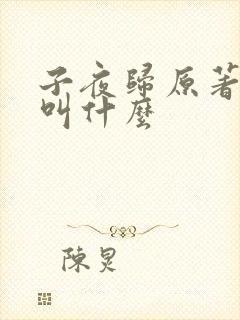 子夜歸原著
叫什麼
陳炅